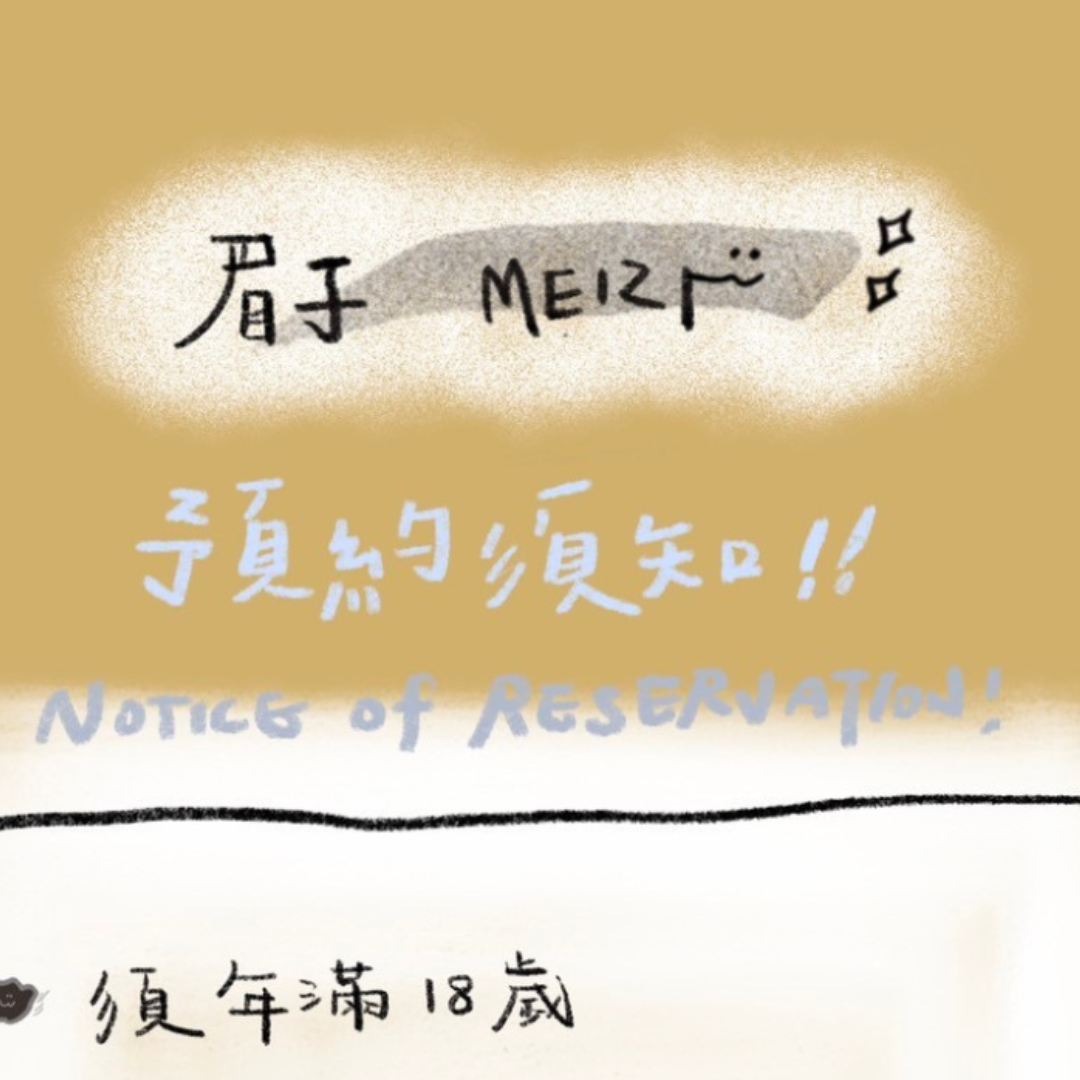 眉子 MEIZI
預約須知!!
NOTICE of RESERVATION!
須年滿18歲